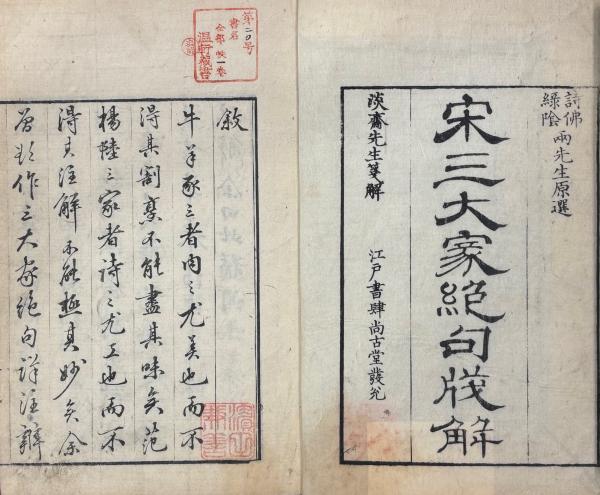 詩佛
綠陰
兩先生原選
宋三大家絕句牋解
淡齋先生箋解
江戶書肆尚古堂發兌
第二〇号
書名
全部 帙一巻
温軒蔵書
敘
牛羊豕三者肉之尤美也而不
得其割烹不能盡其味矣范
楊陸三家者詩之尤工也而不
得其注解不能極其妙矣余
作三大家絕句詳注